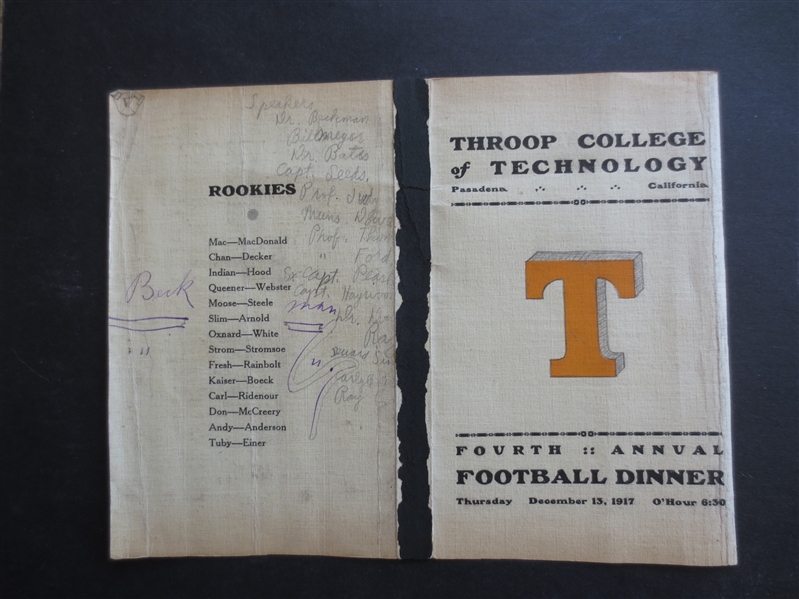 Speakers
Dr.
Bill
Dr. Bates
Capt. Leeds,
ROOKIES
Prof.
Prof.
Mac—MacDonald
Chan—Decker
" Ford
Indian—Hood
Ex Capt.
Queener—Webster
Capt.
Beck
Moose—Steele
man
Slim—Arnold
Dr.
Oxnard—White
Strom—Stromsoe
Fresh—Rainbolt
Kaiser—Boeck
Carl—Ridenour
Ray
Don—McCreery
Andy—Anderson
Tuby—Einer
THROOP COLLEGE
of TECHNOLOGY
Pasadena California
T
FOURTH :: ANNUAL
FOOTBALL DINNER
Thursday December 13, 1917 O'Hour 6:30